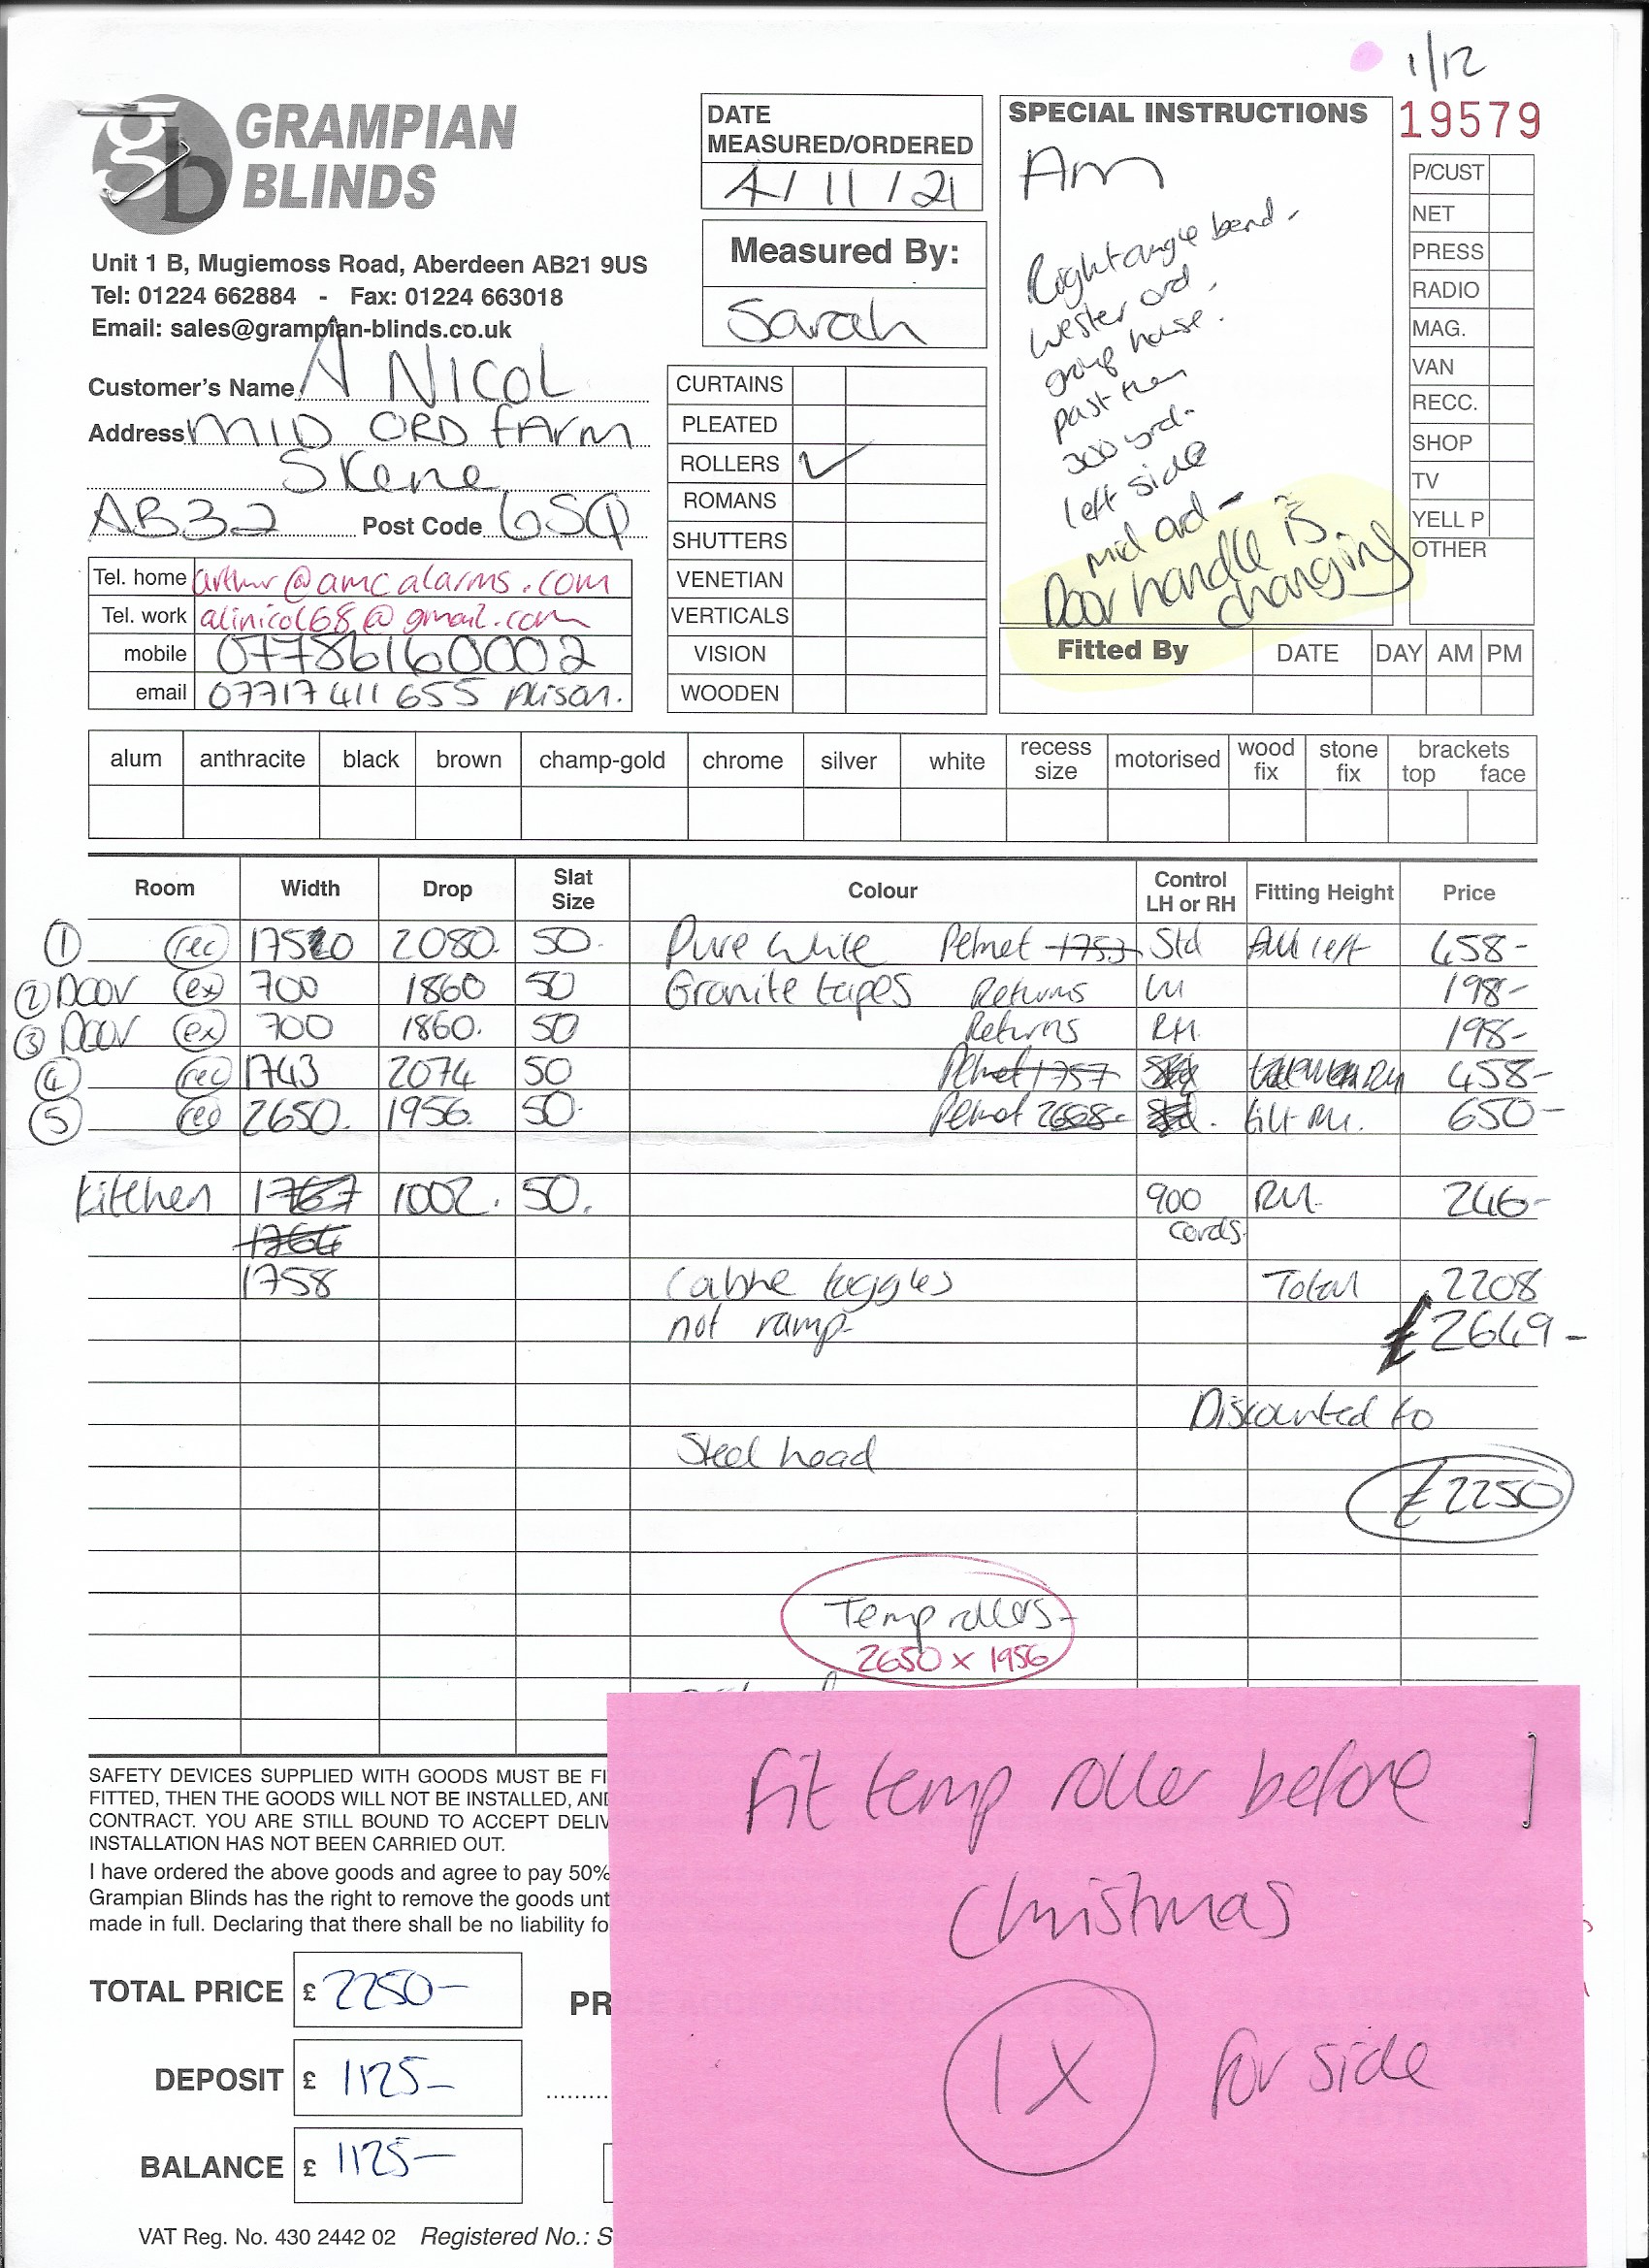 1/12
19579
GRAMPIAN
BLINDS
Unit 1 B, Mugiemoss Road, Aberdeen AB21 9US
Tel: 01224 662884 - Fax: 01224 663018
Email: sales@grampian-blinds.co.uk
Customer's Name A NICOL
Address MID ORD FARM
Skene
AB32 Post Code 6SQ
Tel. home arthur@amcalarms.com
Tel. work alinicol68@gmail.com
mobile 07786160002
email 07717 411 655 Alison.
DATE
MEASURED/ORDERED
4/11/21
Measured By:
Sarah
CURTAINS
PLEATED
ROLLERS ✓
ROMANS
SHUTTERS
VENETIAN
VERTICALS
VISION
WOODEN
SPECIAL INSTRUCTIONS
Am
Right angle bend -
Wester ord.
group house.
past them
300 yrd-
left side
mid ord -
Door handle is
changing
Fitted By DATE DAY AM PM
P/CUST
NET
PRESS
RADIO
MAG.
VAN
RECC.
SHOP
TV
YELL P
OTHER
alum anthracite black brown champ-gold chrome silver white recess size motorised wood fix stone fix brackets top face
Room Width Drop Slat Size Colour Control LH or RH Fitting Height Price
① rec 2080. 50. Pure white Pelmet 1753 Std left 458-
② Door ex 700 1860 50 Granite tapes Returns LH 198-
③ Door ex 700 1860. 50 Returns RH. 198-
④ rec 1743 2074 50 Pelmet 1757 458-
⑤ rec 2650. 1956. 50. Pelmet tilt RH. 650-
Kitchen 1767 1002. 50. 900 RH. 246-
1764 cords.
1758 toggles Total 2208
not ramp- £2649-
Discounted to
Steel head
£2250
Temp rollers-
2650 x 1956
SAFETY DEVICES SUPPLIED WITH GOODS MUST BE FI
FITTED, THEN THE GOODS WILL NOT BE INSTALLED, AND
CONTRACT. YOU ARE STILL BOUND TO ACCEPT DELIV
INSTALLATION HAS NOT BEEN CARRIED OUT.
I have ordered the above goods and agree to pay 50%
Grampian Blinds has the right to remove the goods unt
made in full. Declaring that there shall be no liability fo
TOTAL PRICE £ 2250- PR
DEPOSIT £ 1125-
BALANCE £ 1125-
VAT Reg. No. 430 2442 02 Registered No.: S
Fit temp roller before
Christmas
1X for side